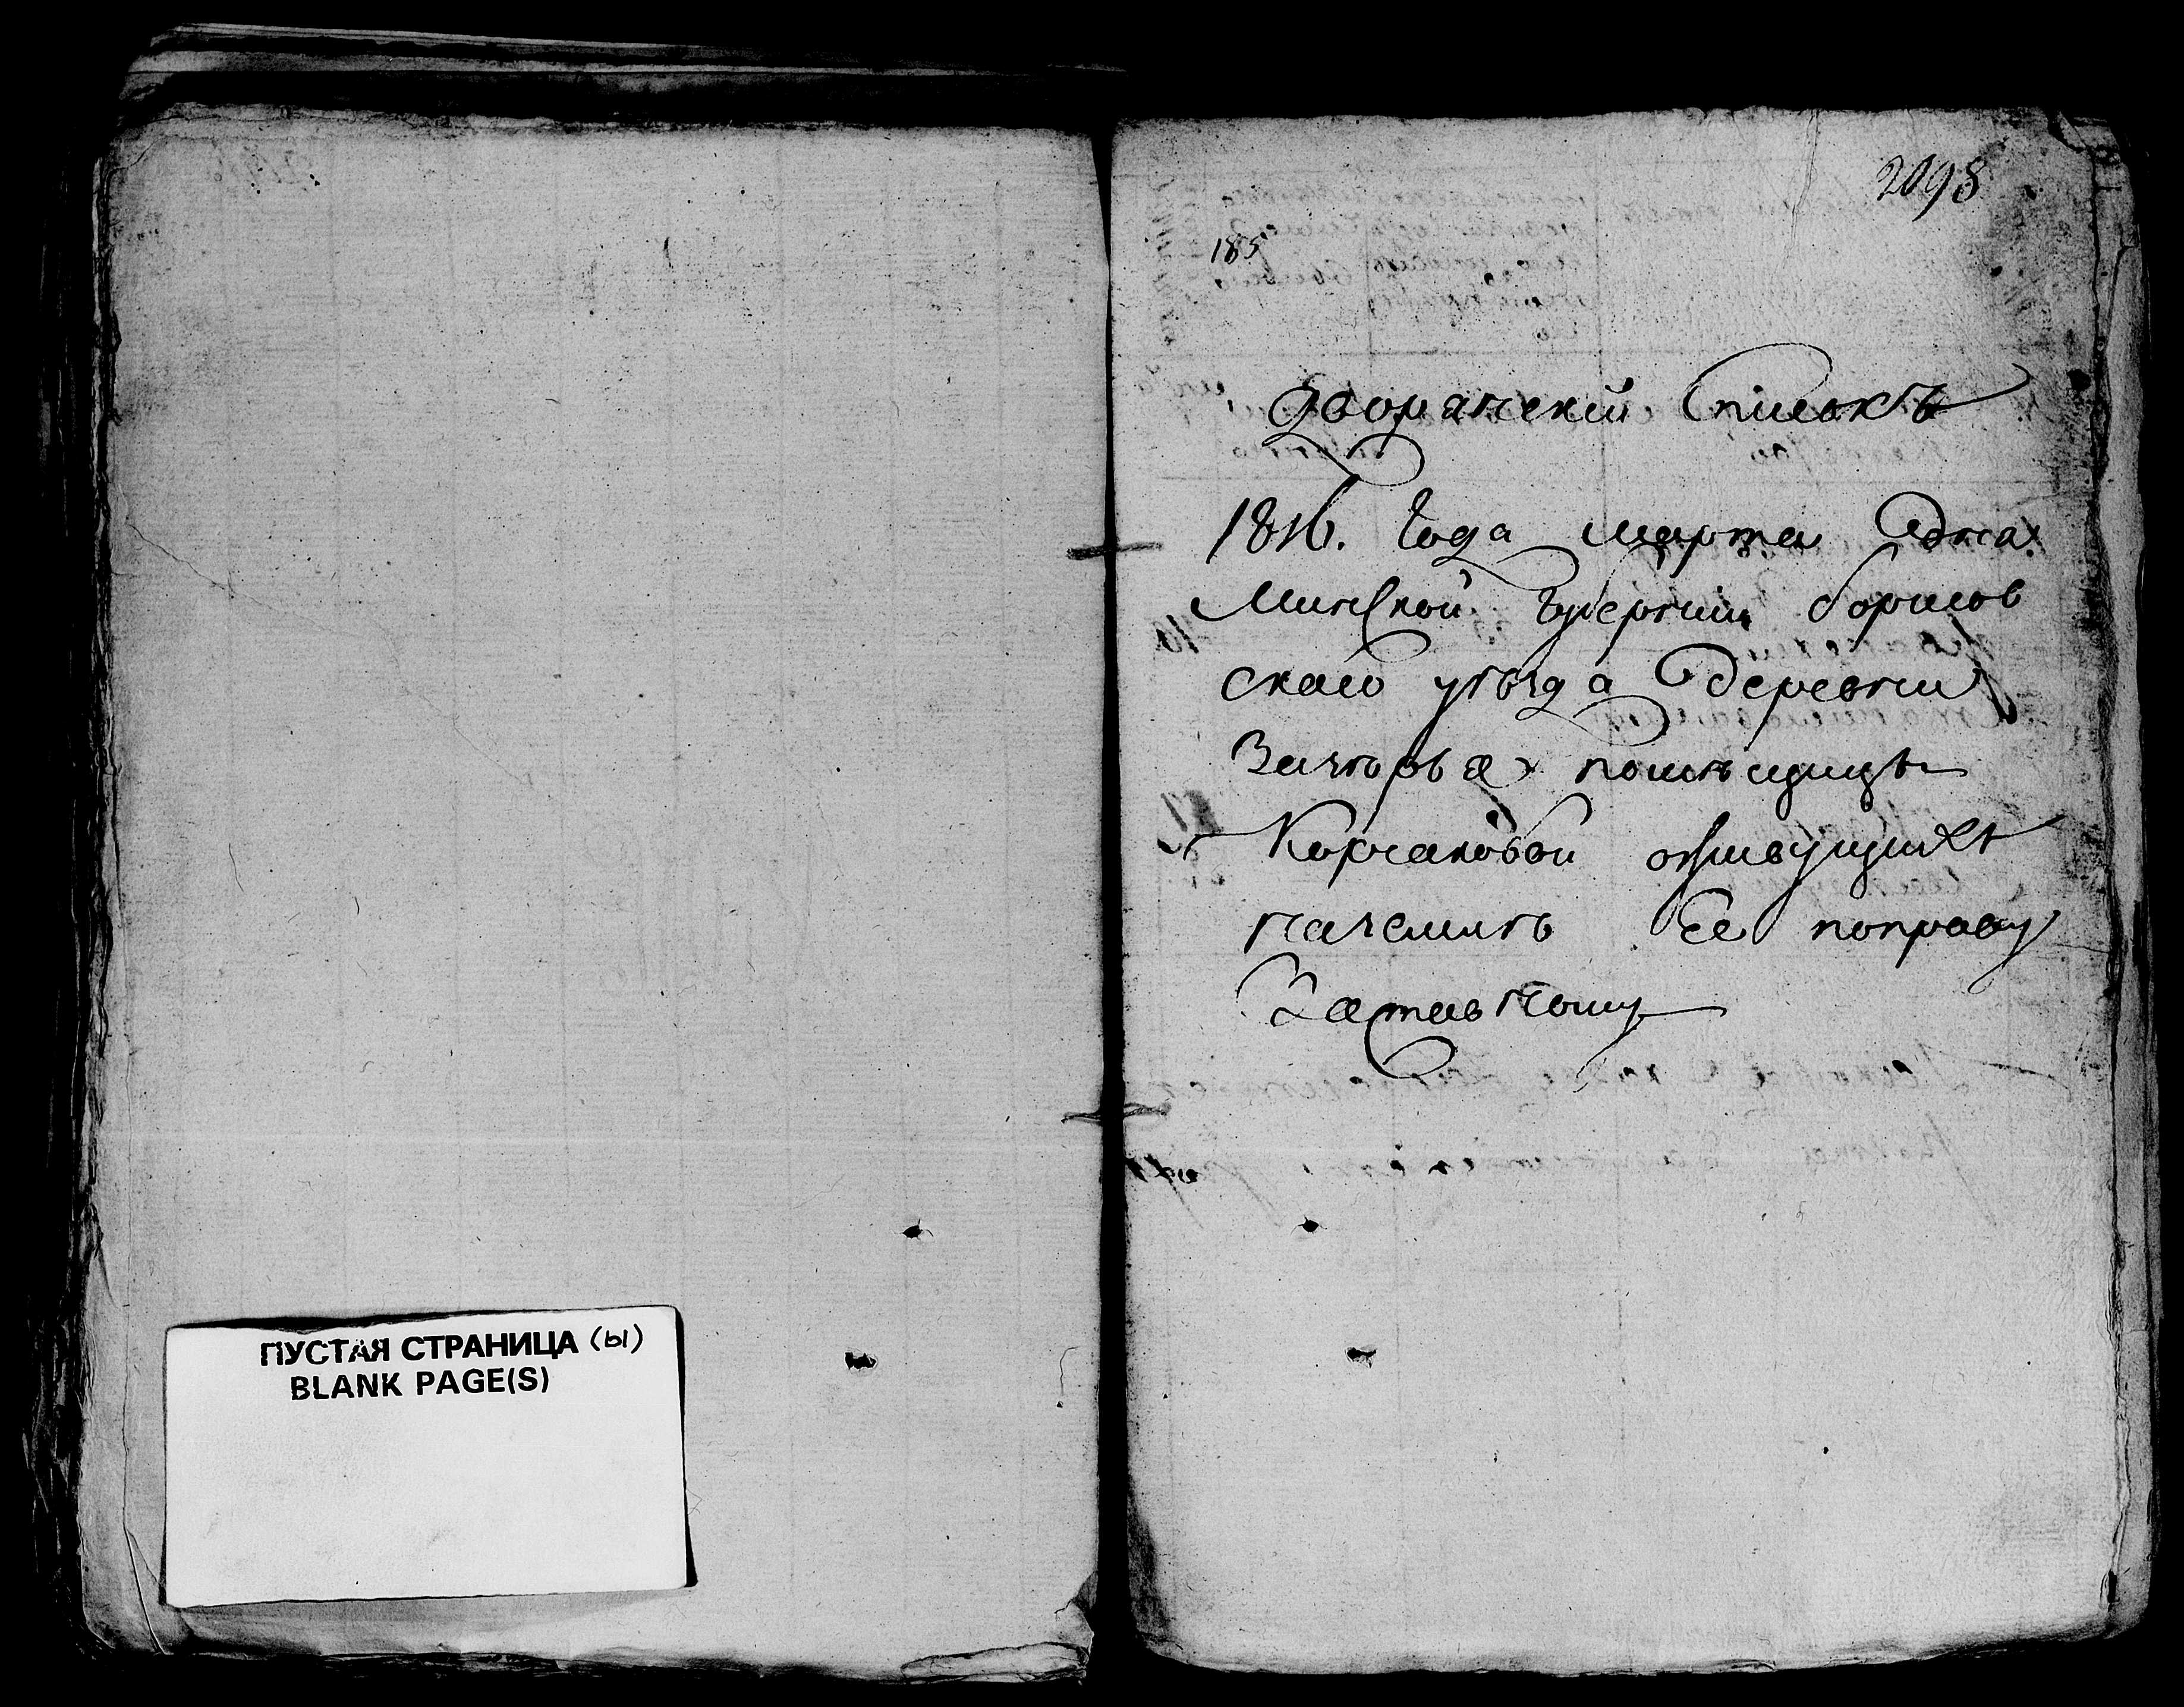 ПУСТАЯ СТРАНИЦА (Ы)
BLANK PAGE(S)
2098
185
Дворянскій Списокъ
1816. Года марта дня
Минской Губерніи Борисов
скаго уѣзда деревни
помѣщицы
Корсаковой живущихъ
наземлѣ Ее поправу
Заставному